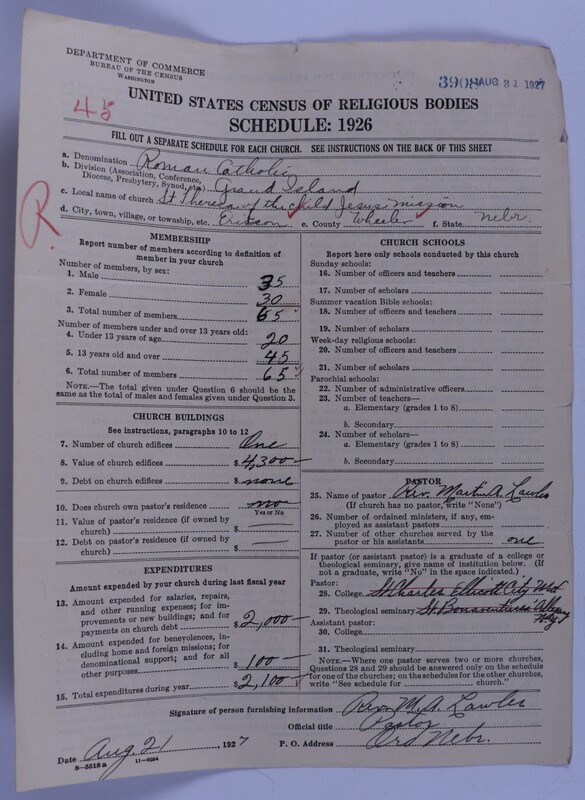 DEPARTMENT OF COMMERCE
BUREAU OF THE CENSUS
WASHINGTON
3908 AUG 31 1927
45
UNITED STATES CENSUS OF RELIGIOUS BODIES
SCHEDULE: 1926
FILL OUT A SEPARATE SCHEDULE FOR EACH CHURCH. SEE INSTRUCTIONS ON THE BACK OF THIS SHEET
R.
a. Denomination Roman Catholic
b. Division (Association, Conference, Diocese, Presbytery, Synod, etc.) Grand Island
c. Local name of church St Theresa of the Child Jesus mission
d. City, town, village, or township, etc. Ericson e. County Wheeler f. State Nebr.
MEMBERSHIP
Report number of members according to definition of
member in your church
Number of members, by sex:
1. Male 35
2. Female 30
3. Total number of members 65
Number of members under and over 13 years old:
4. Under 13 years of age 20
5. 13 years old and over 45
6. Total number of members 65
NOTE.—The total given under Question 6 should be the
same as the total of males and females given under Question 3.
CHURCH BUILDINGS
See instructions, paragraphs 10 to 12
7. Number of church edifices One
8. Value of church edifices $ 4,300—
9. Debt on church edifices $ none
10. Does church own pastor's residence no
Yes or No
11. Value of pastor's residence (if owned by
church) $ —
12. Debt on pastor's residence (if owned by
church) $ —
EXPENDITURES
Amount expended by your church during last fiscal year
13. Amount expended for salaries, repairs,
and other running expenses; for im-
provements or new buildings; and for
payments on church debt $ 2,000—
14. Amount expended for benevolences, in-
cluding home and foreign missions; for
denominational support; and for all
other purposes $ 100—
15. Total expenditures during year $ 2,100—
CHURCH SCHOOLS
Report here only schools conducted by this church
Sunday schools:
16. Number of officers and teachers
17. Number of scholars
Summer vacation Bible schools:
18. Number of officers and teachers
19. Number of scholars
Week-day religious schools:
20. Number of officers and teachers
21. Number of scholars
Parochial schools:
22. Number of administrative officers
23. Number of teachers—
a. Elementary (grades 1 to 8)
b. Secondary
24. Number of scholars—
a. Elementary (grades 1 to 8)
b. Secondary
PASTOR
25. Name of pastor Rev. Martin A. Lawler
(If church has no pastor, write "None")
26. Number of ordained ministers, if any, em-
ployed as assistant pastors
27. Number of other churches served by the
pastor or his assistants one
If pastor (or assistant pastor) is a graduate of a college or
theological seminary, give name of institution below. (If
not a graduate, write "No" in the space indicated.)
Pastor:
28. College St Charles Ellicott City Md
29. Theological seminary St Bonaventures Allegany
N.Y.
Assistant pastor:
30. College
31. Theological seminary
NOTE.—Where one pastor serves two or more churches,
Questions 28 and 29 should be answered only on the schedule
for one of the churches; on the schedules for the other churches,
write "See schedule for ........ church."
Signature of person furnishing information Rev. M. A. Lawler
Official title Pastor
Date Aug. 21, 1927 P. O. Address Ord Nebr.
8—5518a 11—9054